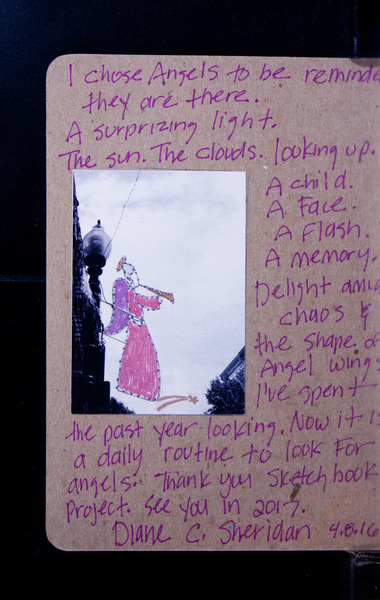 I chose Angels to be reminde
they are there.
A surprizing light.
The sun. The clouds. looking up.
A child.
A Face.
A Flash.
A memory.
Delight amid
chaos &
the shape of
Angel wings
I've spent
the past year looking. Now it is
a daily routine to look For
angels. Thank you Sketchbook
Project. See you in 2017.
Diane C. Sheridan 4.8.16